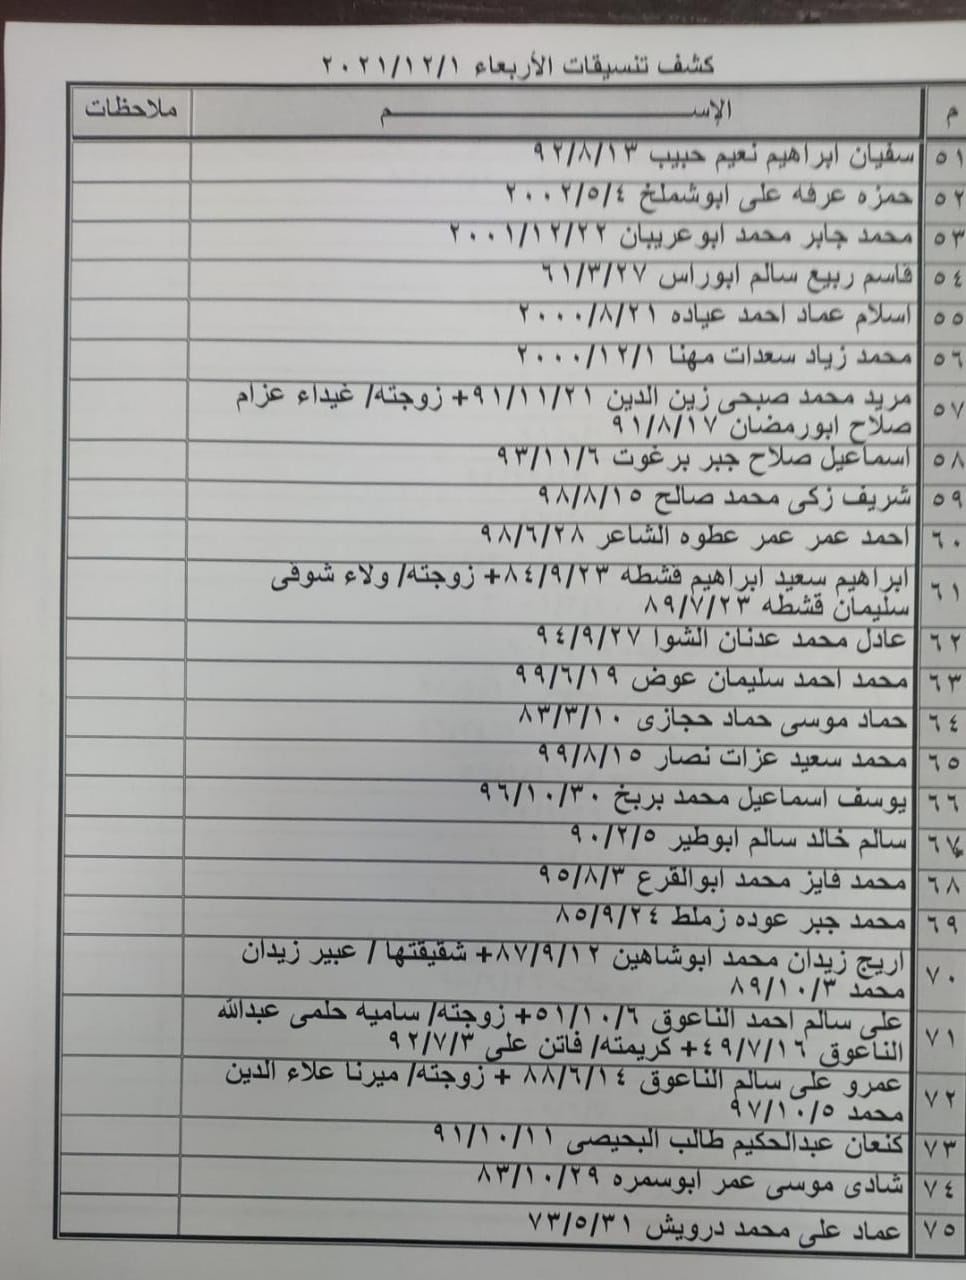 كشف تنسيقات الأربعاء ٢٠٢١/١٢/١
م الإســـــــــم ملاحظات
٥١ سفيان ابراهيم نعيم حبيب ٩٢/٨/١٣
٥٢ حمزه عرفه على ابوشملخ ٢٠٠٢/٥/٤
٥٣ محمد جابر محمد ابوعريبان ٢٠٠١/١٢/٢٢
٥٤ قاسم ربيع سالم ابوراس ٦١/٣/٢٧
٥٥ اسلام عماد احمد عياده ٢٠٠٠/٨/٢١
٥٦ محمد زياد سعدات مهنا ٢٠٠٠/١٢/١
٥٧ مريد محمد صبحى زين الدين ٩١/١١/٢١+ زوجته/ غيداء عزام
صلاح ابورمضان ٩١/٨/١٧
٥٨ اسماعيل صلاح جبر برغوت ٩٣/١١/٦
٥٩ شريف زكى محمد صالح ٩٨/٨/١٥
٦٠ احمد عمر عمر عطوه الشاعر ٩٨/٦/٢٨
٦١ ابراهيم سعيد ابراهيم قشطه ٨٤/٩/٢٣+ زوجته/ ولاء شوقى
سليمان قشطه ٨٩/٧/٢٣
٦٢ عادل محمد عدنان الشوا ٩٤/٩/٢٧
٦٣ محمد احمد سليمان عوض ٩٩/٦/١٩
٦٤ حماد موسى حماد حجازى ٨٣/٣/١٠
٦٥ محمد سعيد عزات نصار ٩٩/٨/١٥
٦٦ يوسف اسماعيل محمد بربخ ٩٦/١٠/٣٠
٦٧ سالم خالد سالم ابوطير ٩٠/٢/٥
٦٨ محمد فايز محمد ابوالقرع ٩٥/٨/٣
٦٩ محمد جبر عوده زملط ٨٥/٩/٢٤
٧٠ اريج زيدان محمد ابوشاهين ٨٧/٩/١٢+ شقيقتها / عبير زيدان
محمد ٨٩/١٠/٣
٧١ على سالم احمد الناعوق ٥١/١٠/٦+ زوجته/ ساميه حلمى عبدالله
الناعوق ٤٩/٧/١٦+ كريمته/ فاتن على ٩٢/٧/٣
٧٢ عمرو على سالم الناعوق ٨٨/٦/١٤ + زوجته/ ميرنا علاء الدين
محمد ٩٧/١٠/٥
٧٣ كنعان عبدالحكيم طالب البحيصى ٩١/١٠/١١
٧٤ شادى موسى عمر ابوسمره ٨٣/١٠/٢٩
٧٥ عماد على محمد درويش ٧٣/٥/٣١